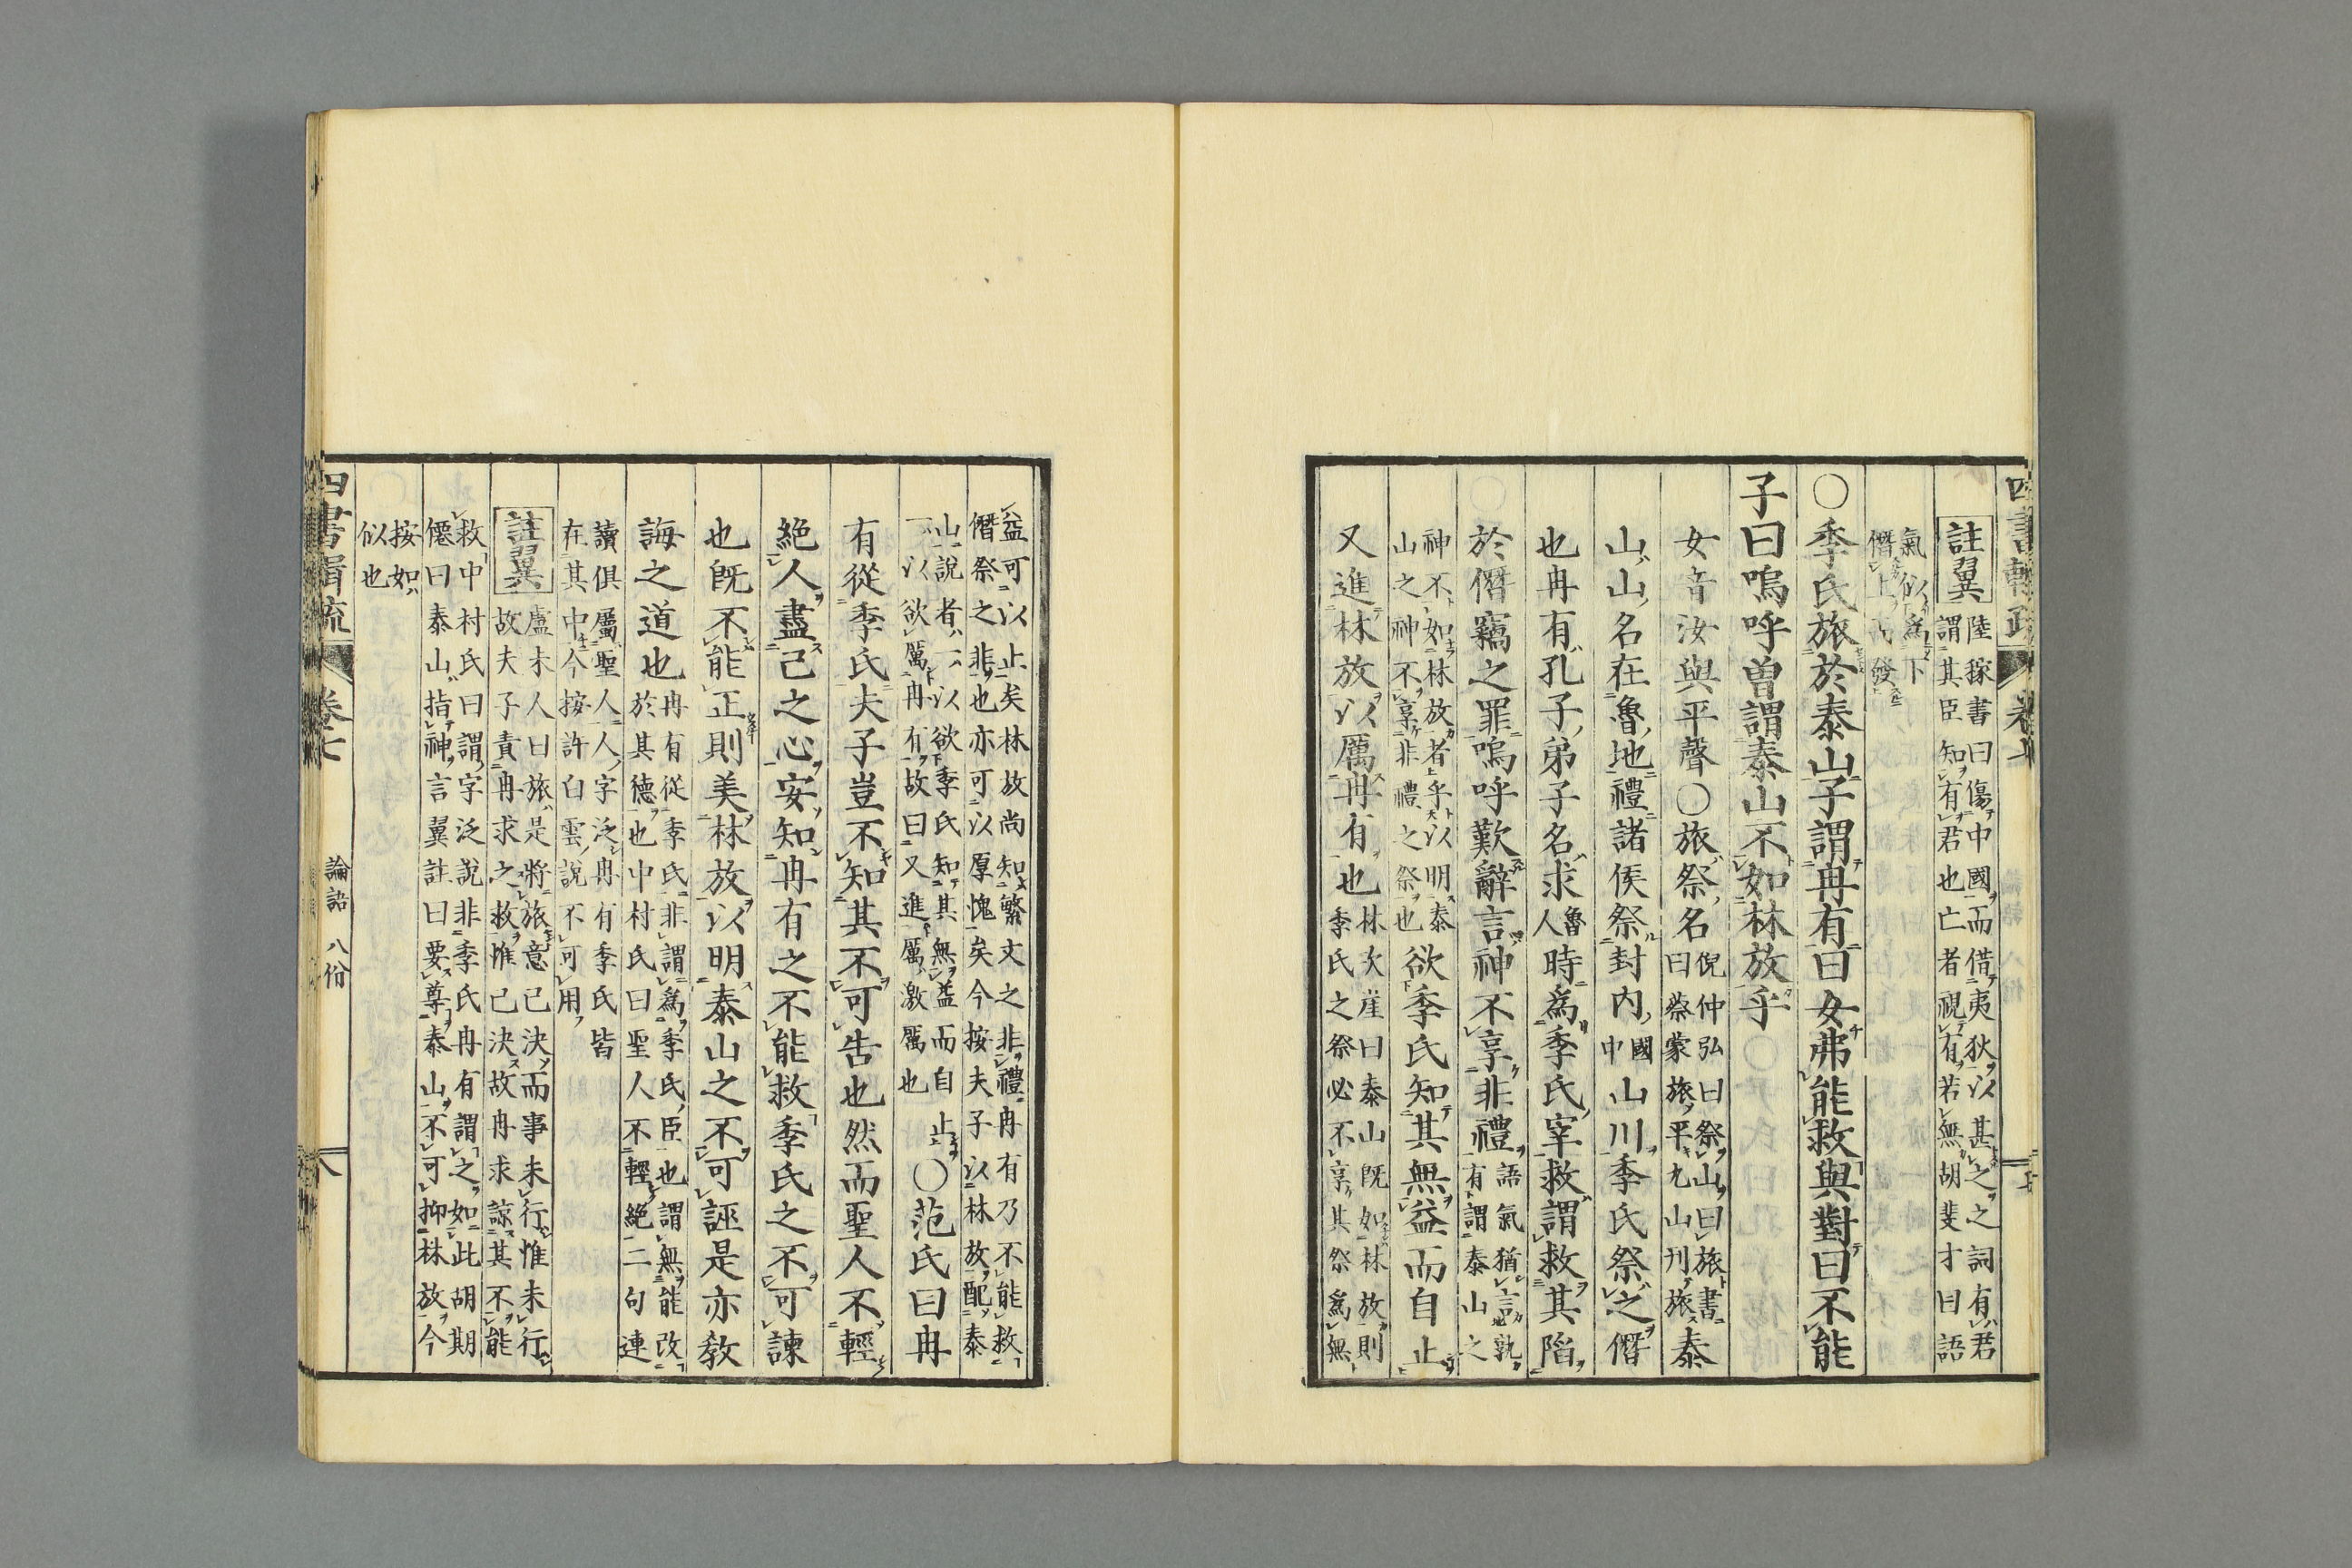 註翼 陸稼書曰傷中國而借夷狄以甚之之詞有君
謂其臣知有君也亡者視有若無胡斐才曰語
氣似爲下
僭上而發
○季氏旅於泰山子謂冉有曰女弗能救與對曰不能
子曰嗚呼曽謂泰山不如林放乎
女音汝與平聲○旅祭名 倪仲弘曰祭山曰旅書
曰蔡蒙旅平九山刊旅 泰
山山名在魯地禮諸侯祭封内 國
中 山川季氏祭之僭
也冉有孔子弟子名求 魯
人 時爲季氏宰救謂救其陷
於僭竊之罪嗚呼歎辭言神不享非禮 語氣猶言孰
有謂泰山之
神不如林放者乎以明泰
山之神不享非禮之祭也 欲季氏知其無益而自止
又進林放以厲冉有也 林次崖曰泰山旣如林放則
季氏之祭必不享其祭爲無
益可以止矣林放尚知繁文之非禮冉有乃不能救
僭祭之非也亦可以厚愧矣今按夫子以林放配泰
山說者一以欲季氏知其無益而自止
一以欲厲冉有故曰又進厲激厲也 ○范氏曰冉
有從季氏夫子豈不知其不可告也然而聖人不輕
絶人盡己之心安知冉有之不能救季氏之不可諫
也旣不能正則美林放以明泰山之不可誣是亦敎
誨之道也 冉有從季氏非謂爲季氏臣也謂無能改
於其德也中村氏曰聖人不輕絶二句連
讀俱屬聖人人字泛冉有季氏皆
在其中今按許白雲說不可用
註翼 盧未人曰旅是將旅意已決而事未行惟未行
故夫子責冉求之救惟已決故冉求諒其不能
救中村氏曰謂字泛說非季氏冉有謂之如此胡期
僊曰泰山指神言翼註曰要尊泰山不可抑林放今
按如
似也
四書
卷七
論語 八佾
八